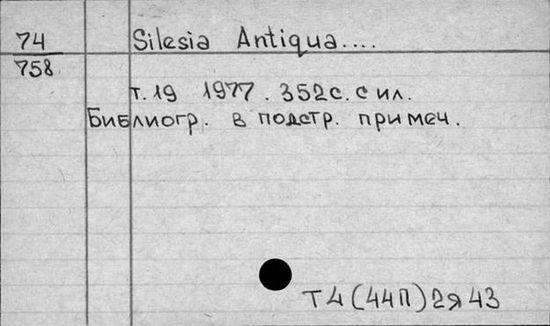 74 Silesia Antiqua....
758
т.19 1977. 352с. с ил.
Библиогр. в подстр. примеч.
Т4(44П)2я43